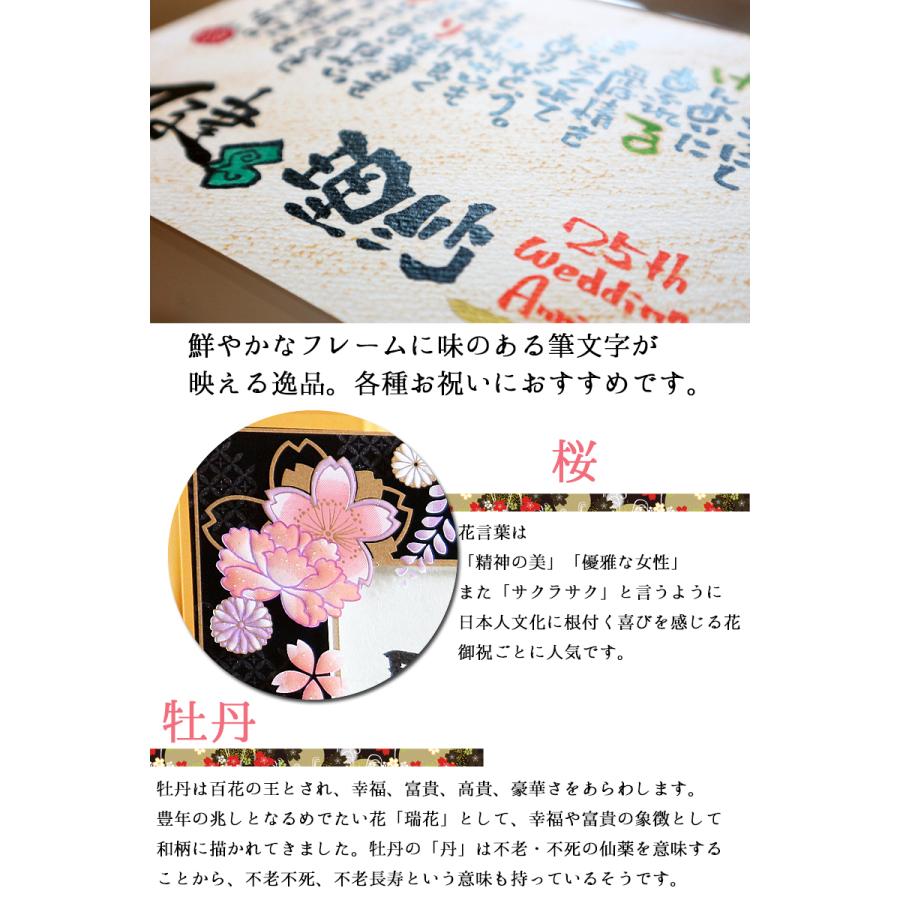 75th
Wedding
鮮やかなフレームに味のある筆文字が
映える逸品。各種お祝いにおすすめです。
桜
花言葉は
「精神の美」「優雅な女性」
また「サクラサク」と言うように
日本人文化に根付く喜びを感じる花
御祝ごとに人気です。
牡丹
牡丹は百花の王とされ、幸福、富貴、高貴、豪華さをあらわします。
豊年の兆しとなるめでたい花「瑞花」として、幸福や富貴の象徴として
和柄に描かれてきました。牡丹の「丹」は不老・不死の仙薬を意味する
ことから、不老不死、不老長寿という意味も持っているそうです。